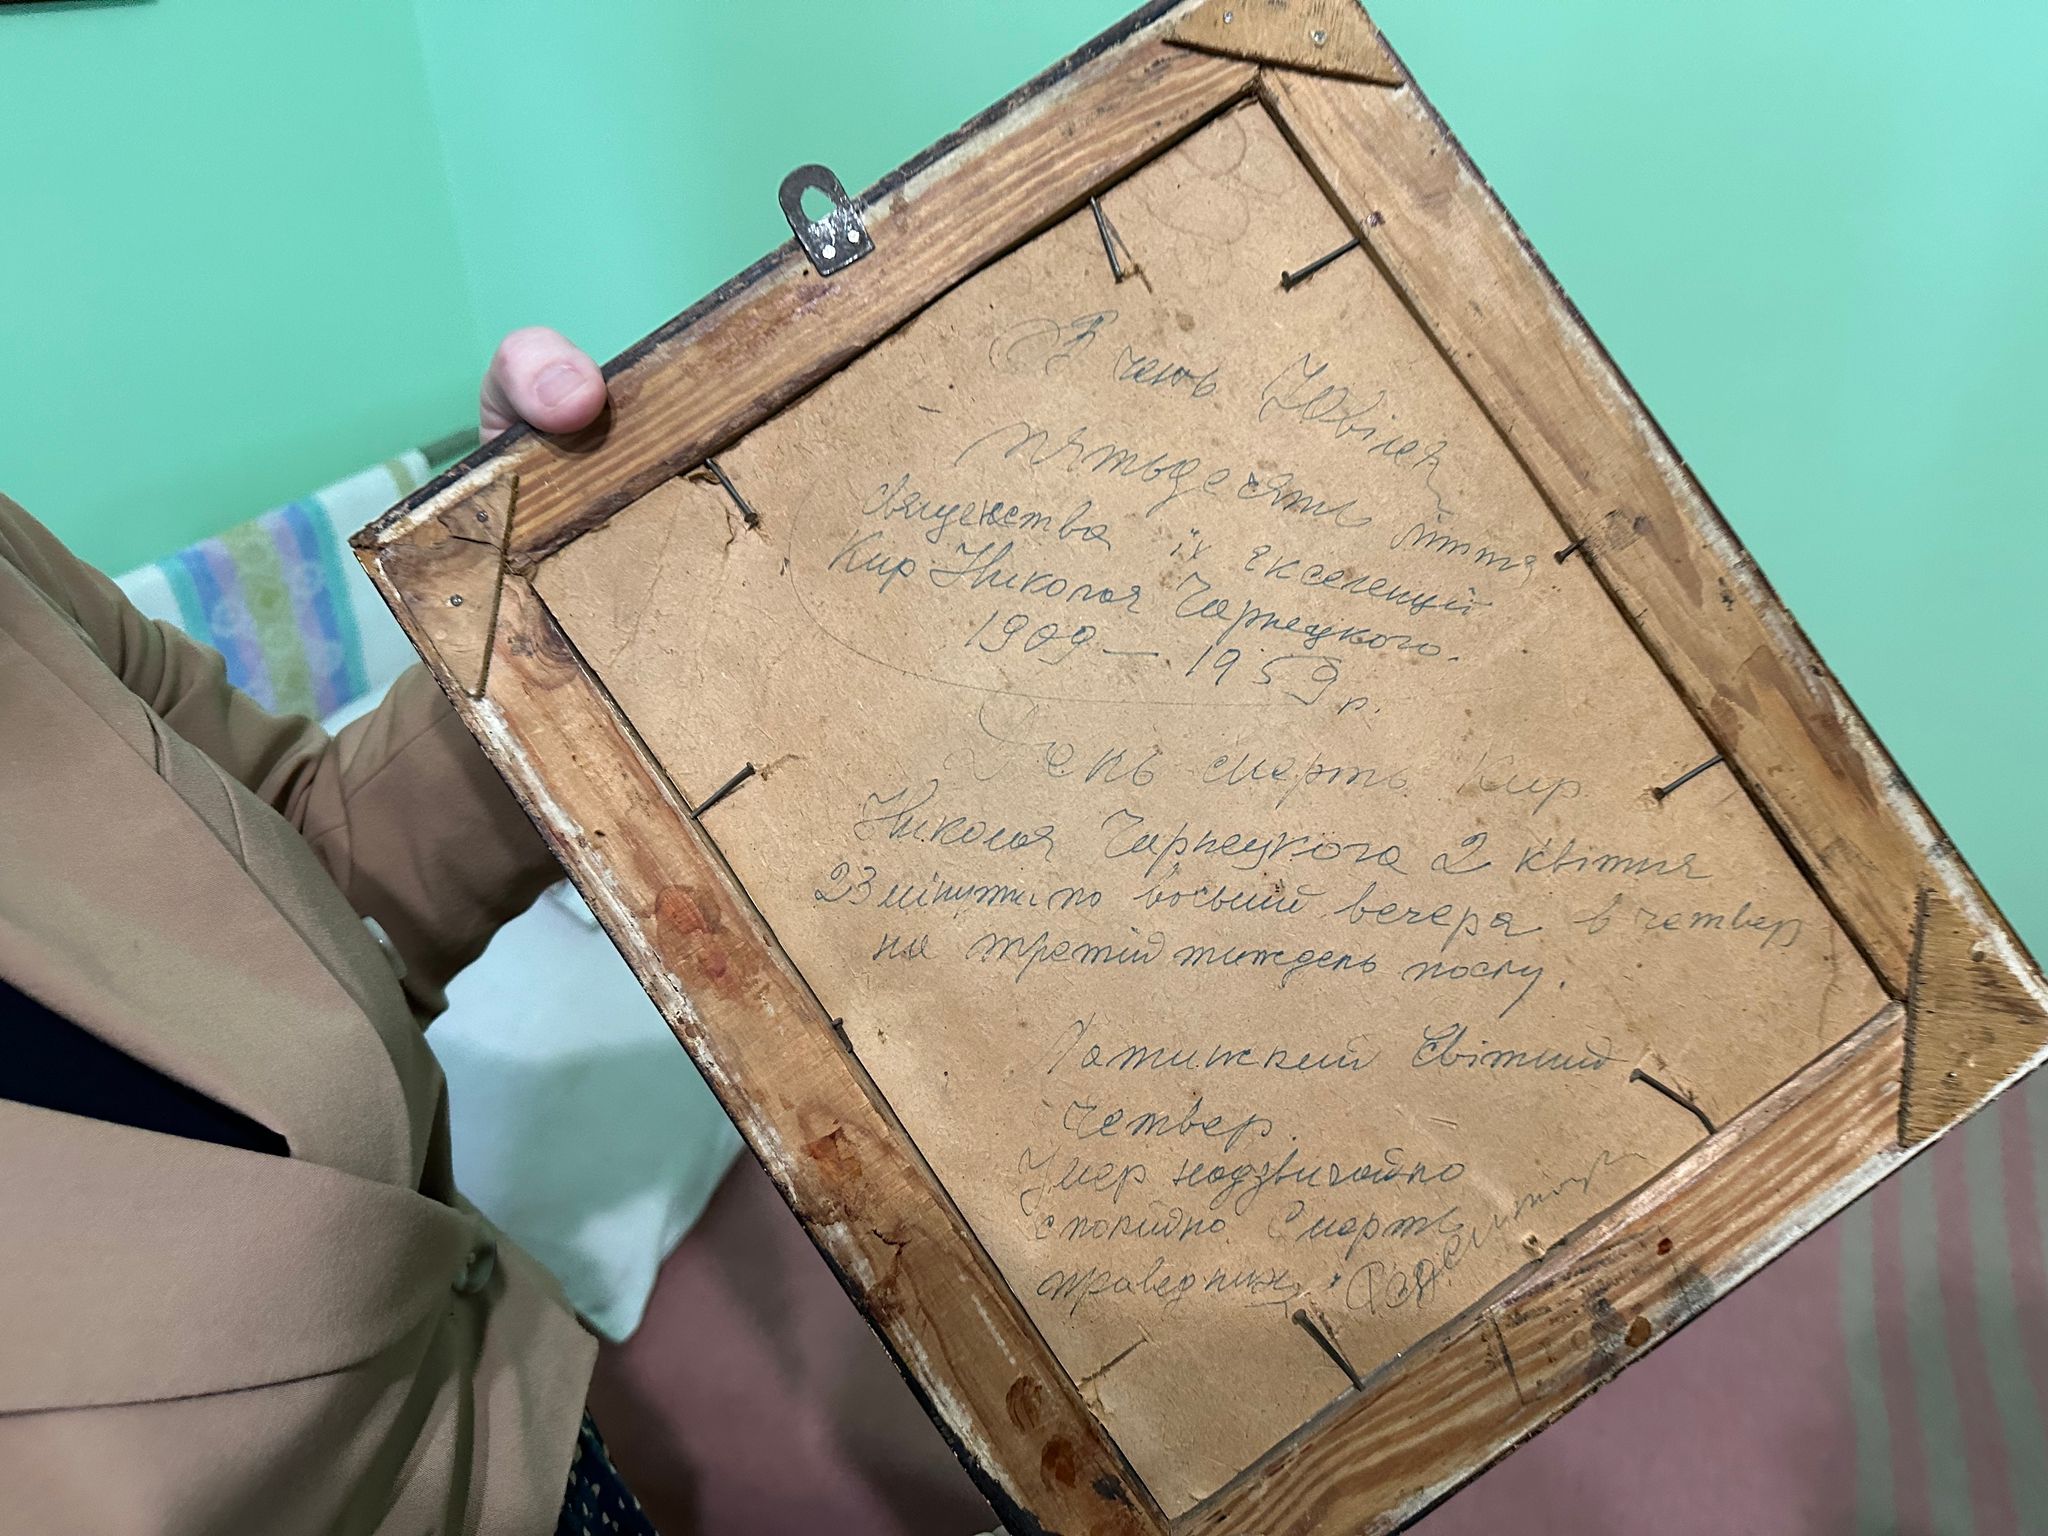 В чень Ювілея
пятьдесять ліття
священства їх екселенції
Кир Николоя Чарнецкого.
1909 — 1959 р.
День смерть Кир
Николоя Чарнецкого 2 квітня
23 мінути по восьмій вечера в четвер
на третій тиждень посту.
Латинский Світлий
Четвер.
Умер надзвичайно
спокійно. Смерть
праведних.